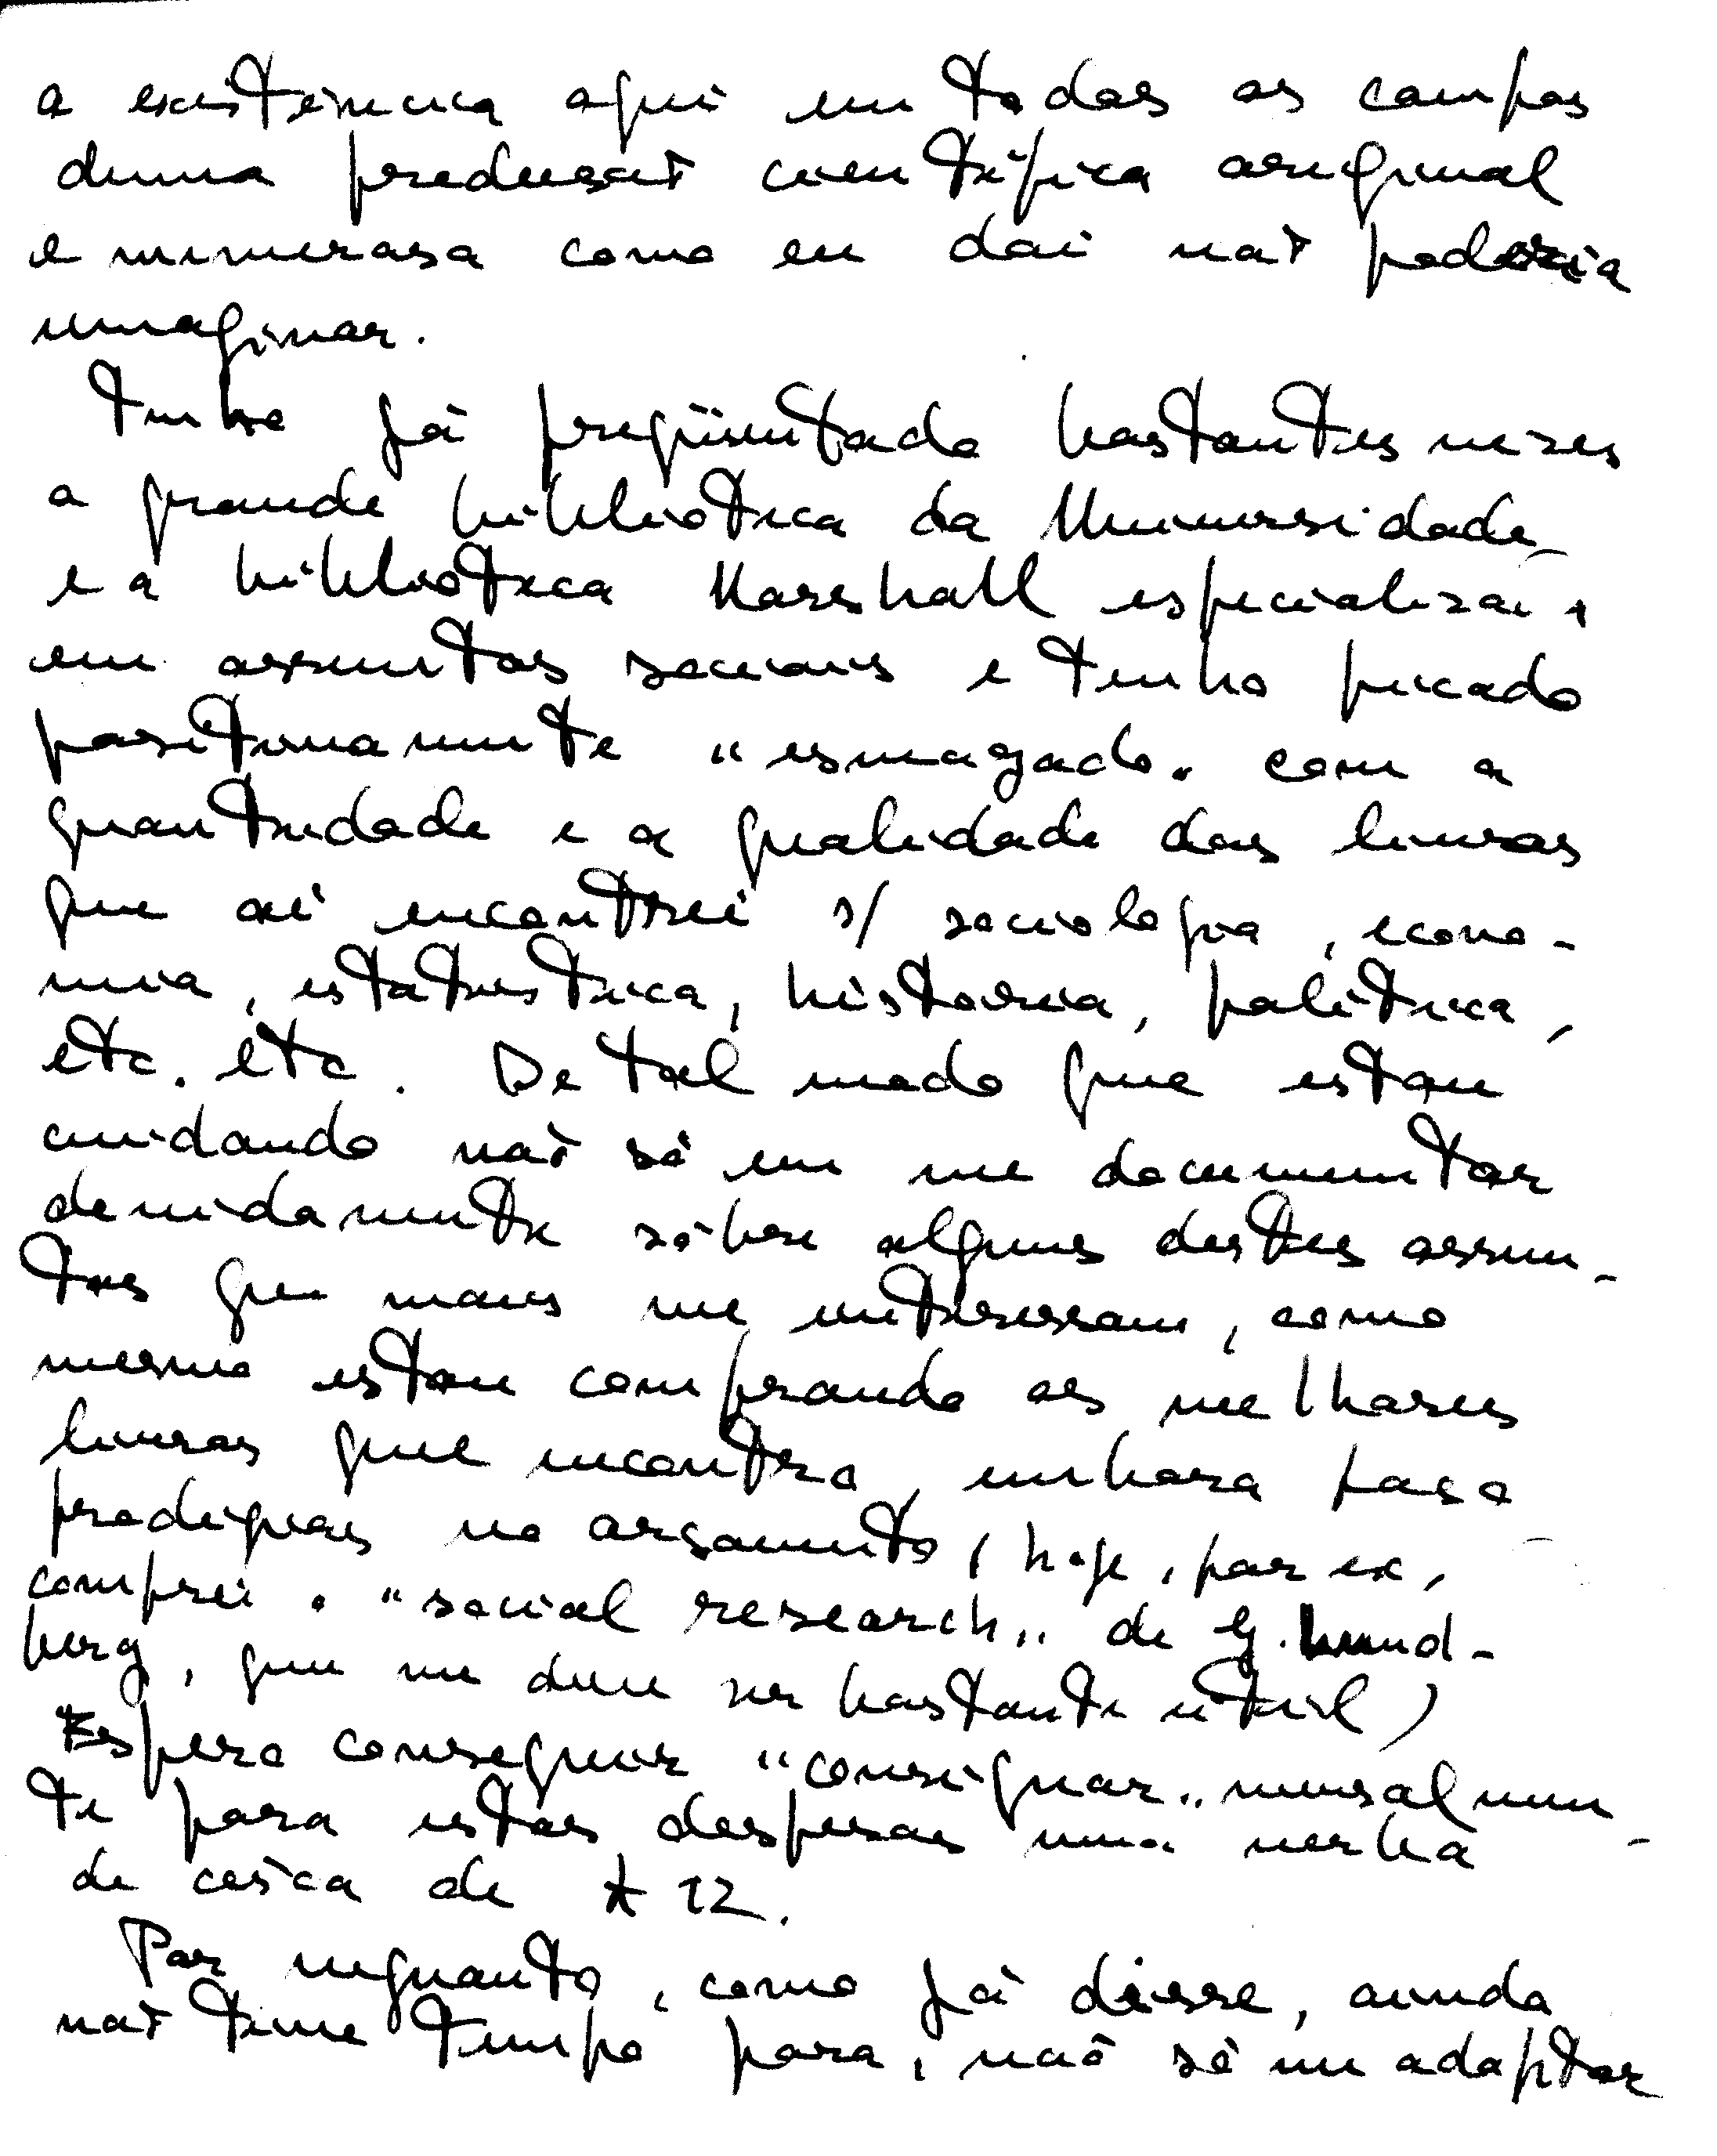 a existência aqui em todos os campos
duma produção científica original
e numerosa como eu daí não poderia
imaginar.
Tenho já freqüentado bastantes vezes
a grande biblioteca da Universidade
e a biblioteca Marshall especializada
em assuntos sociais e tenho ficado
positivamente "esmagado" com a
quantidade e a qualidade dos livros
que aí encontrei s/ sociologia, econo-
mia, estatística, história, política,
etc. etc. De tal modo que estou
cuidando não só em me documentar
devidamente sôbre alguns destes assun-
tos que mais me interessam, como
mesmo estou comprando os melhores
livros que encontro, embora faça
prodígios no orçamento (hoje, por ex,
comprei o "social research" de G. Lund-
berg, que me deve ser bastante útil)
Espero conseguir "consignar" mensalmen-
te para estas despesas uma verba
de cêrca de 12.
Por enquanto, como já disse, ainda
não tive tempo para, não só me adaptar